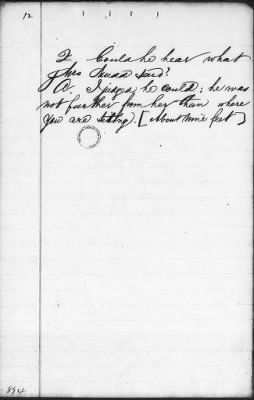 12
Q. Could he hear what
Mrs said?
A. I judge he could; he was
not further from her than where
you are sitting. [About nine feet]
894